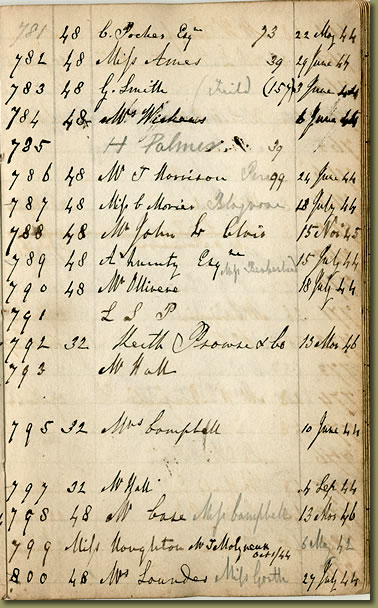 781 48 C. Pocher Esqr 73 22 May 44
782 48 Miss Ames 39 29 June 44
783 48 G. Smith (Field) (157) 3 June 44
784 48 Mrs 6 June 44
785 H Palmer 39
786 48 Mr T Morrison 99 24 June 44
787 48 Miss C Morier Blagrove 18 July 44
788 48 Mr John 15 Nov 45
789 48 A Esqre 15 July 44
Miss
790 48 Mr Ollivere 18 July 44
791 L S P
792 32 Keith Prowse & Co 13 Mar 46
793 Mr Hall
795 32 Mrs Campbell 10 June 44
797 32 Mr Hall 4 Sep 44
798 48 Mr Case Miss Campbell 13 Nov 46
799 Miss Houghton Mr T Molyneux 6 May 42
Oct 1/44
800 48 Mrs Saunder Miss 27 July 44